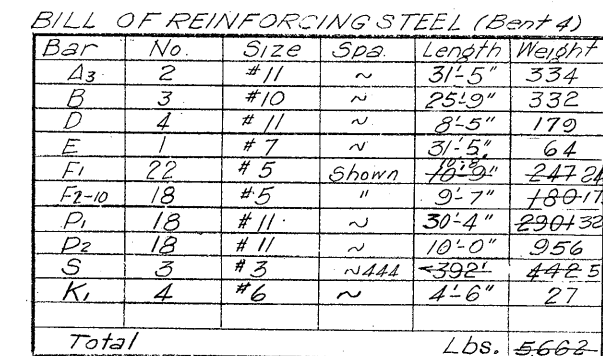 BILL OF REINFORCING STEEL (Bent 4)
Bar No. Size Spa. Length Weight
A3 2 #11 ~ 31'-5" 334
B 3 #10 ~ 25'-9" 332
D 4 #11 ~ 8'-5" 179
E 1 #7 ~ 31'-5" 64
F1 22 #5 Shown 10'-9" 10'-8" 247 24
F2-10 18 #5 " 9'-7" 180 17
P1 18 #11 ~ 30'-4" 2901 32
P2 18 #11 ~ 10'-0" 956
S 3 #3 ~444 392' 442 5
K1 4 #6 ~ 4'-6" 27
Total Lbs. 5662